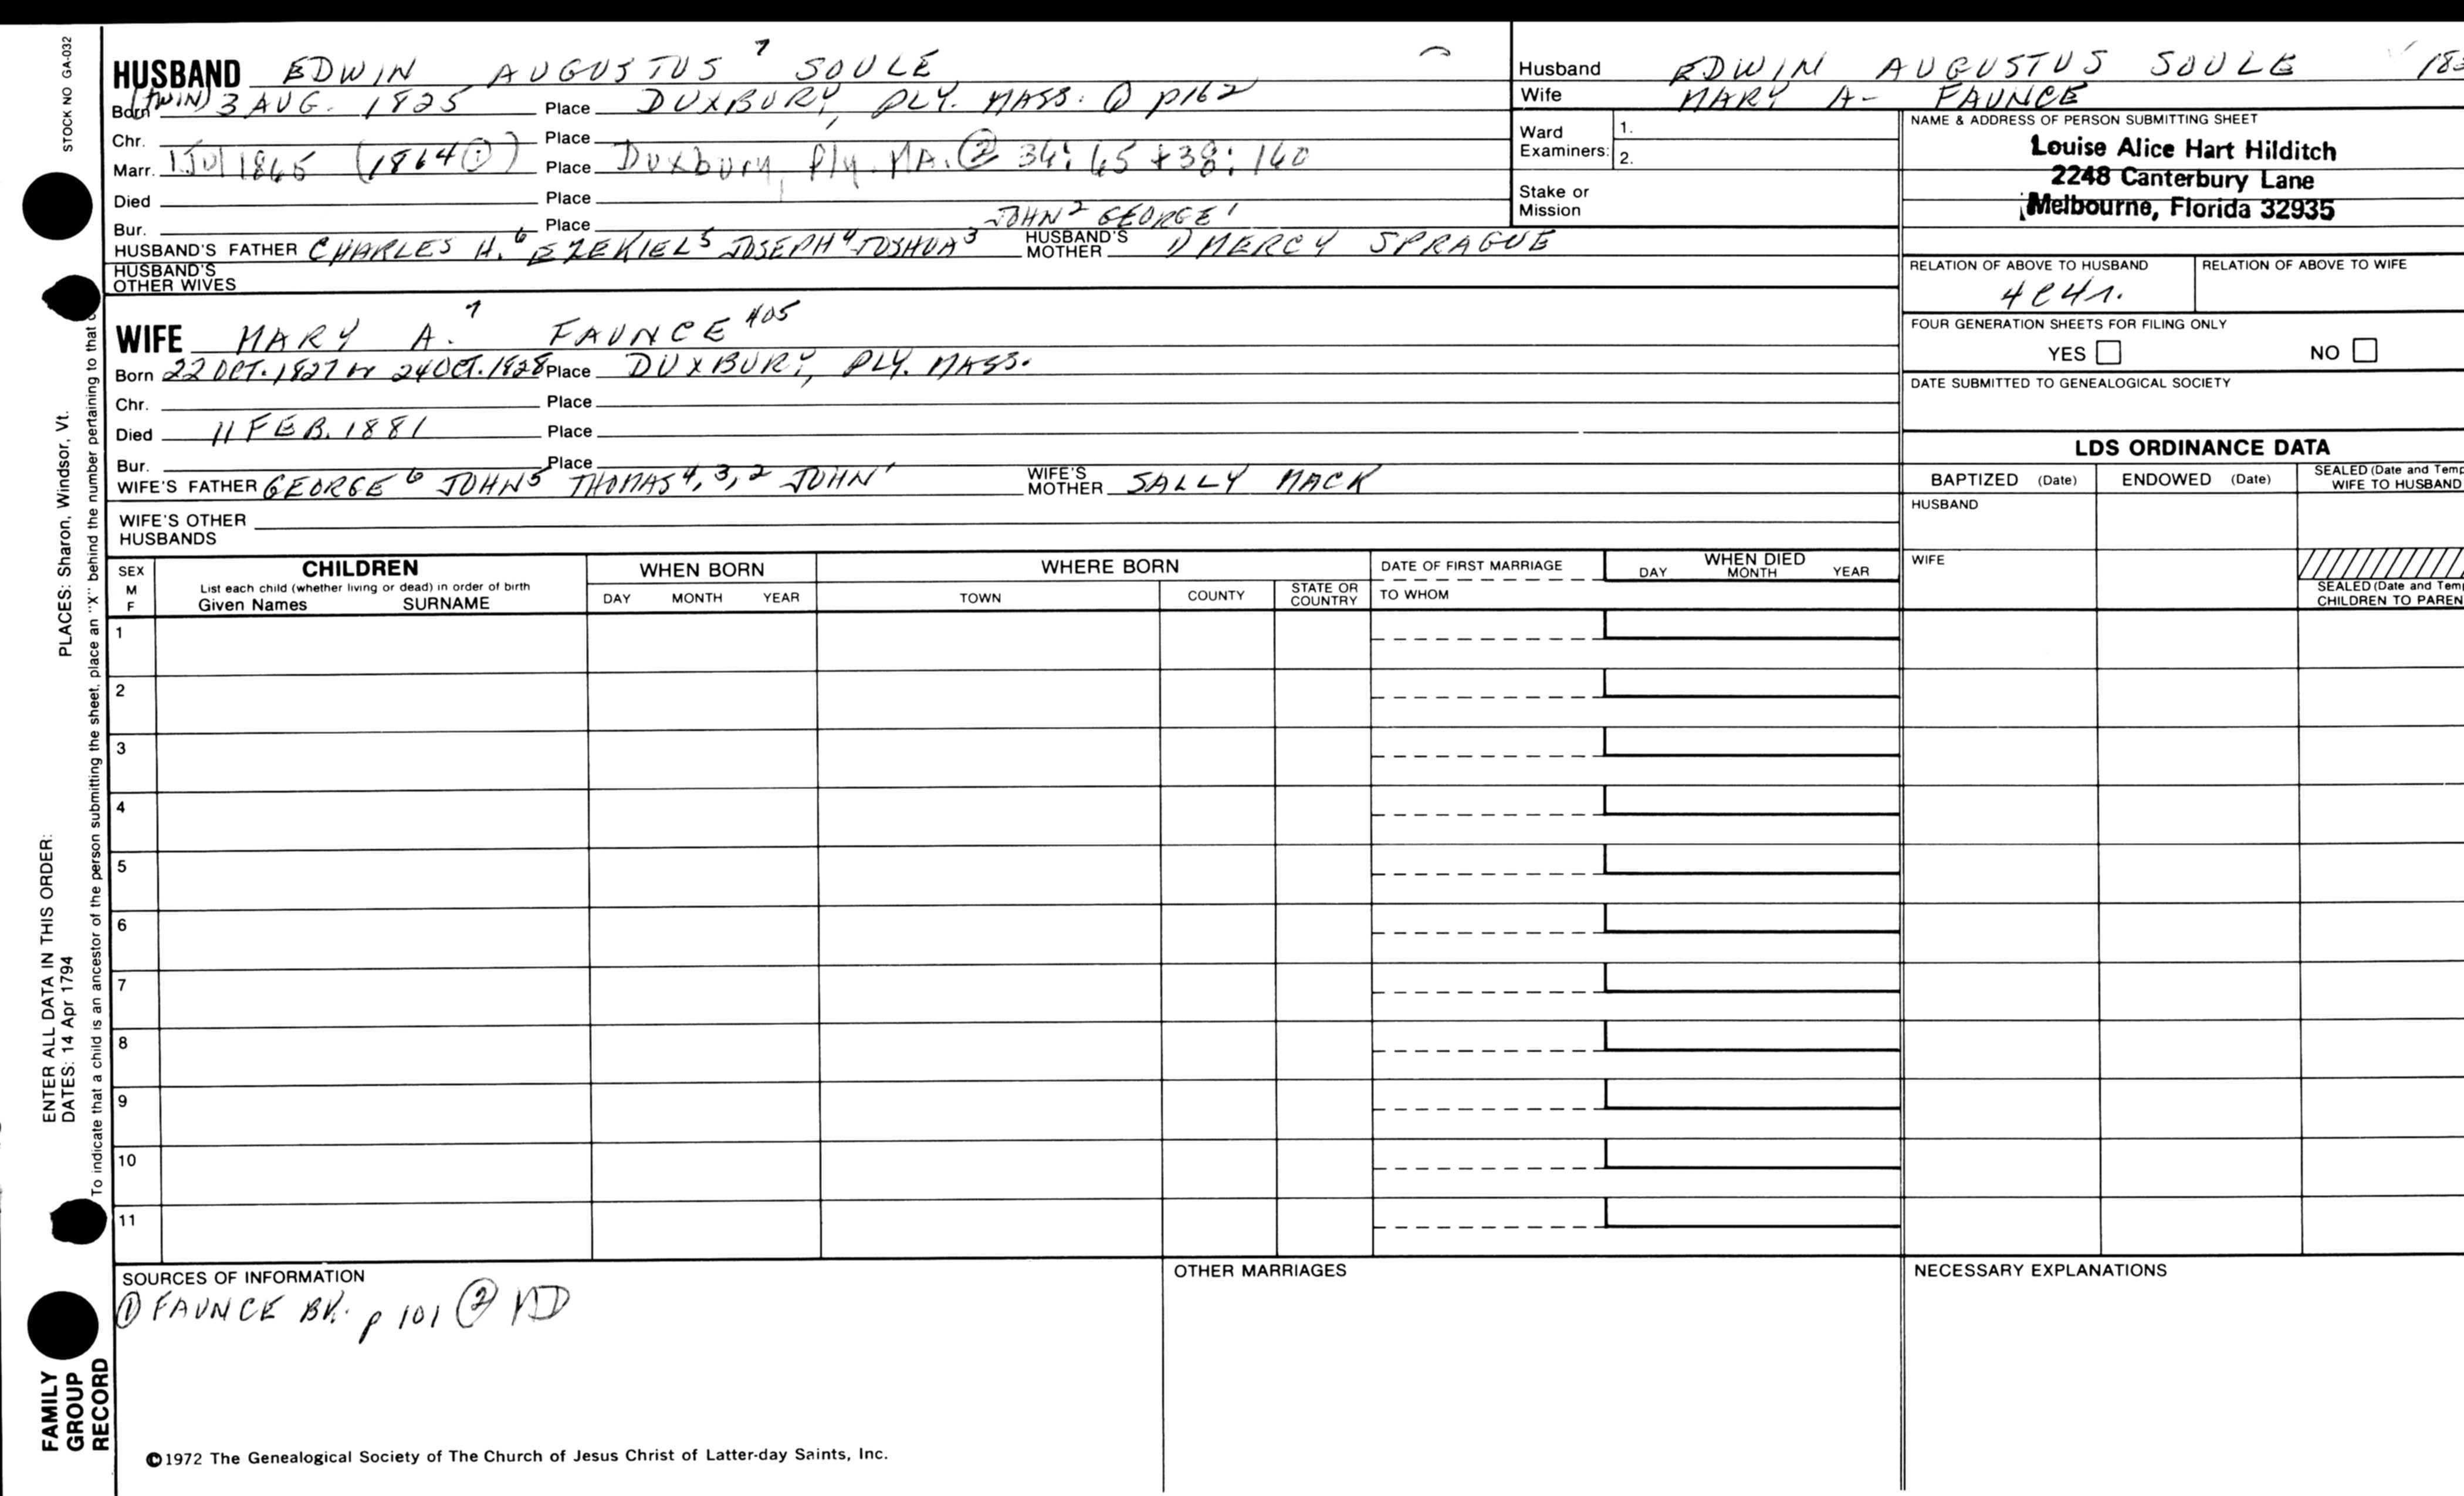 STOCK NO GA-032
HUSBAND EDWIN AUGUSTUS⁷ SOULE
Born (TWIN) 3 AUG. 1825 Place DUXBURY, PLY. MASS. p162
Chr. Place
Marr. 1 Jul 1865 (1864 ①) Place Duxbury, Ply. MA. ② 34:65 + 38:160
Died Place
Bur. Place
JOHN² GEORGE¹
HUSBAND'S FATHER CHARLES H.⁶ EZEKIEL⁵ JOSEPH⁴ JOSHUA³ HUSBAND'S MOTHER MERCY SPRAGUE
HUSBAND'S OTHER WIVES
WIFE MARY A.⁷ FAUNCE 405
Born 22 OCT. 1827 or 24 OCT. 1828 Place DUXBURY, PLY. MASS.
Chr. Place
Died 11 FEB. 1881 Place
Bur. Place
WIFE'S FATHER GEORGE⁶ JOHN⁵ THOMAS⁴,³,² JOHN¹ WIFE'S MOTHER SALLY MACK
WIFE'S OTHER HUSBANDS
Husband EDWIN AUGUSTUS SOULE
Wife MARY A- FAUNCE
Ward Examiners: 1.
2.
Stake or Mission
NAME & ADDRESS OF PERSON SUBMITTING SHEET
Louise Alice Hart Hilditch
2248 Canterbury Lane
Melbourne, Florida 32935
RELATION OF ABOVE TO HUSBAND RELATION OF ABOVE TO WIFE
4C4r.
FOUR GENERATION SHEETS FOR FILING ONLY
YES NO
DATE SUBMITTED TO GENEALOGICAL SOCIETY
LDS ORDINANCE DATA
BAPTIZED (Date) ENDOWED (Date) SEALED (Date and Temp
WIFE TO HUSBAND
HUSBAND
WIFE
SEALED (Date and Temp
CHILDREN TO PAREN
SEX
M
F
CHILDREN
List each child (whether living or dead) in order of birth
Given Names SURNAME
WHEN BORN
DAY MONTH YEAR
WHERE BORN
TOWN COUNTY STATE OR COUNTRY
DATE OF FIRST MARRIAGE
TO WHOM
WHEN DIED
DAY MONTH YEAR
1
2
3
4
5
6
7
8
9
10
11
SOURCES OF INFORMATION
① FAUNCE BK. p 101 ② VID
OTHER MARRIAGES
NECESSARY EXPLANATIONS
©1972 The Genealogical Society of The Church of Jesus Christ of Latter-day Saints, Inc.
FAMILY
GROUP
RECORD
ENTER ALL DATA IN THIS ORDER:
DATES: 14 Apr 1794
PLACES: Sharon, Windsor, Vt.
To indicate that a child is an ancestor of the person submitting the sheet, place an "X" behind the number pertaining to that